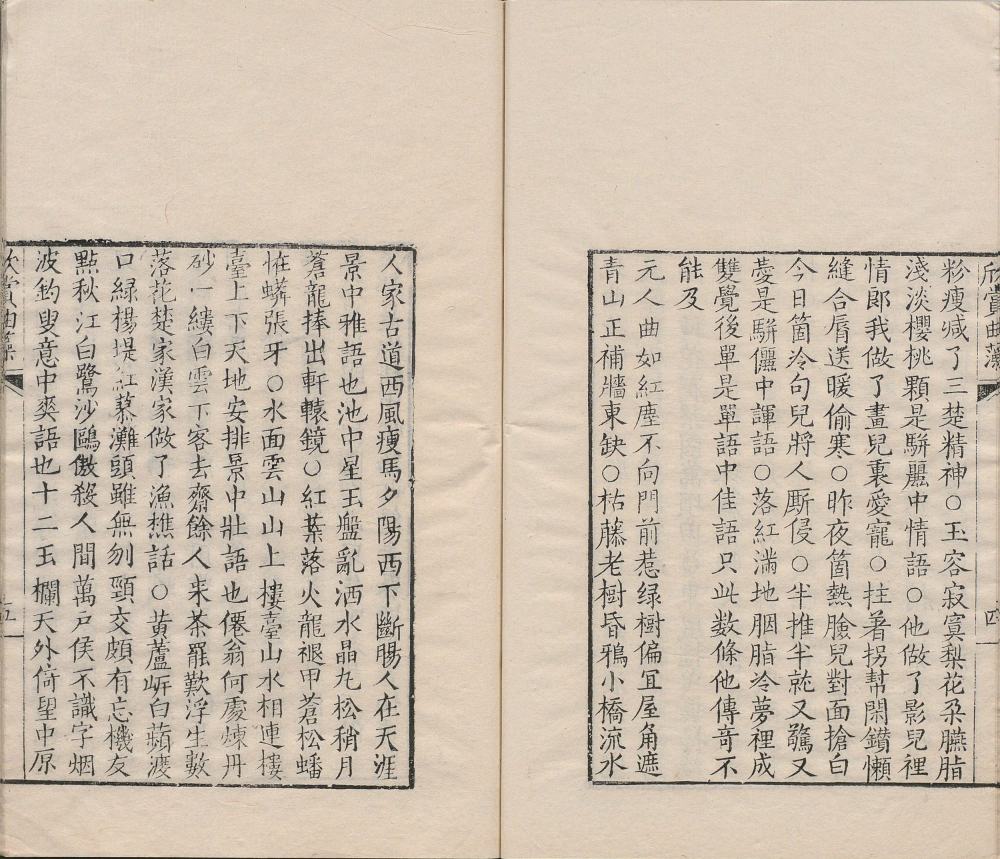 欣賞曲藻
四
粉瘦減了三楚精神○玉容寂寞梨花朶臙脂
淺淡櫻桃顆是駢麗中情語○他做了影兒裡
情郎我做了畫兒裏愛寵○拄著拐幇閑鑽懶
縫合脣送暖偷寒○昨夜箇熱臉兒對面搶白
今日箇冷句兒將人厮侵○半推半就又驚又
愛是駢儷中諢語○落紅滿地胭脂冷夢裡成
雙覺後單是單語中佳語只此数條他傳奇不
能及
元人曲如紅塵不向門前惹绿樹偏宜屋角遮
青山正補牆東缺○枯藤老樹昏鴉小橋流水
人家古道西風瘦馬夕陽西下斷膓人在天涯
景中雅語也池中星玉盤亂洒水晶丸松稍月
蒼龍捧出軒轅鏡○紅葉落火龍褪甲蒼松蟠
恠蟒張牙○水面雲山山上樓臺山水相連樓
臺上下天地安排景中壯語也僊翁何處煉丹
砂一縷白雲下客去齋餘人来茶罷歎浮生數
落花楚家漢家做了漁樵話○黄蘆岍白蘋渡
口緑楊堤紅蓼灘頭雖無刎頸交頗有忘機友
點秋江白鷺沙鷗傲殺人間萬户侯不識字烟
波釣叟意中爽語也十二玉欄天外倚望中原
欣賞曲藻
五